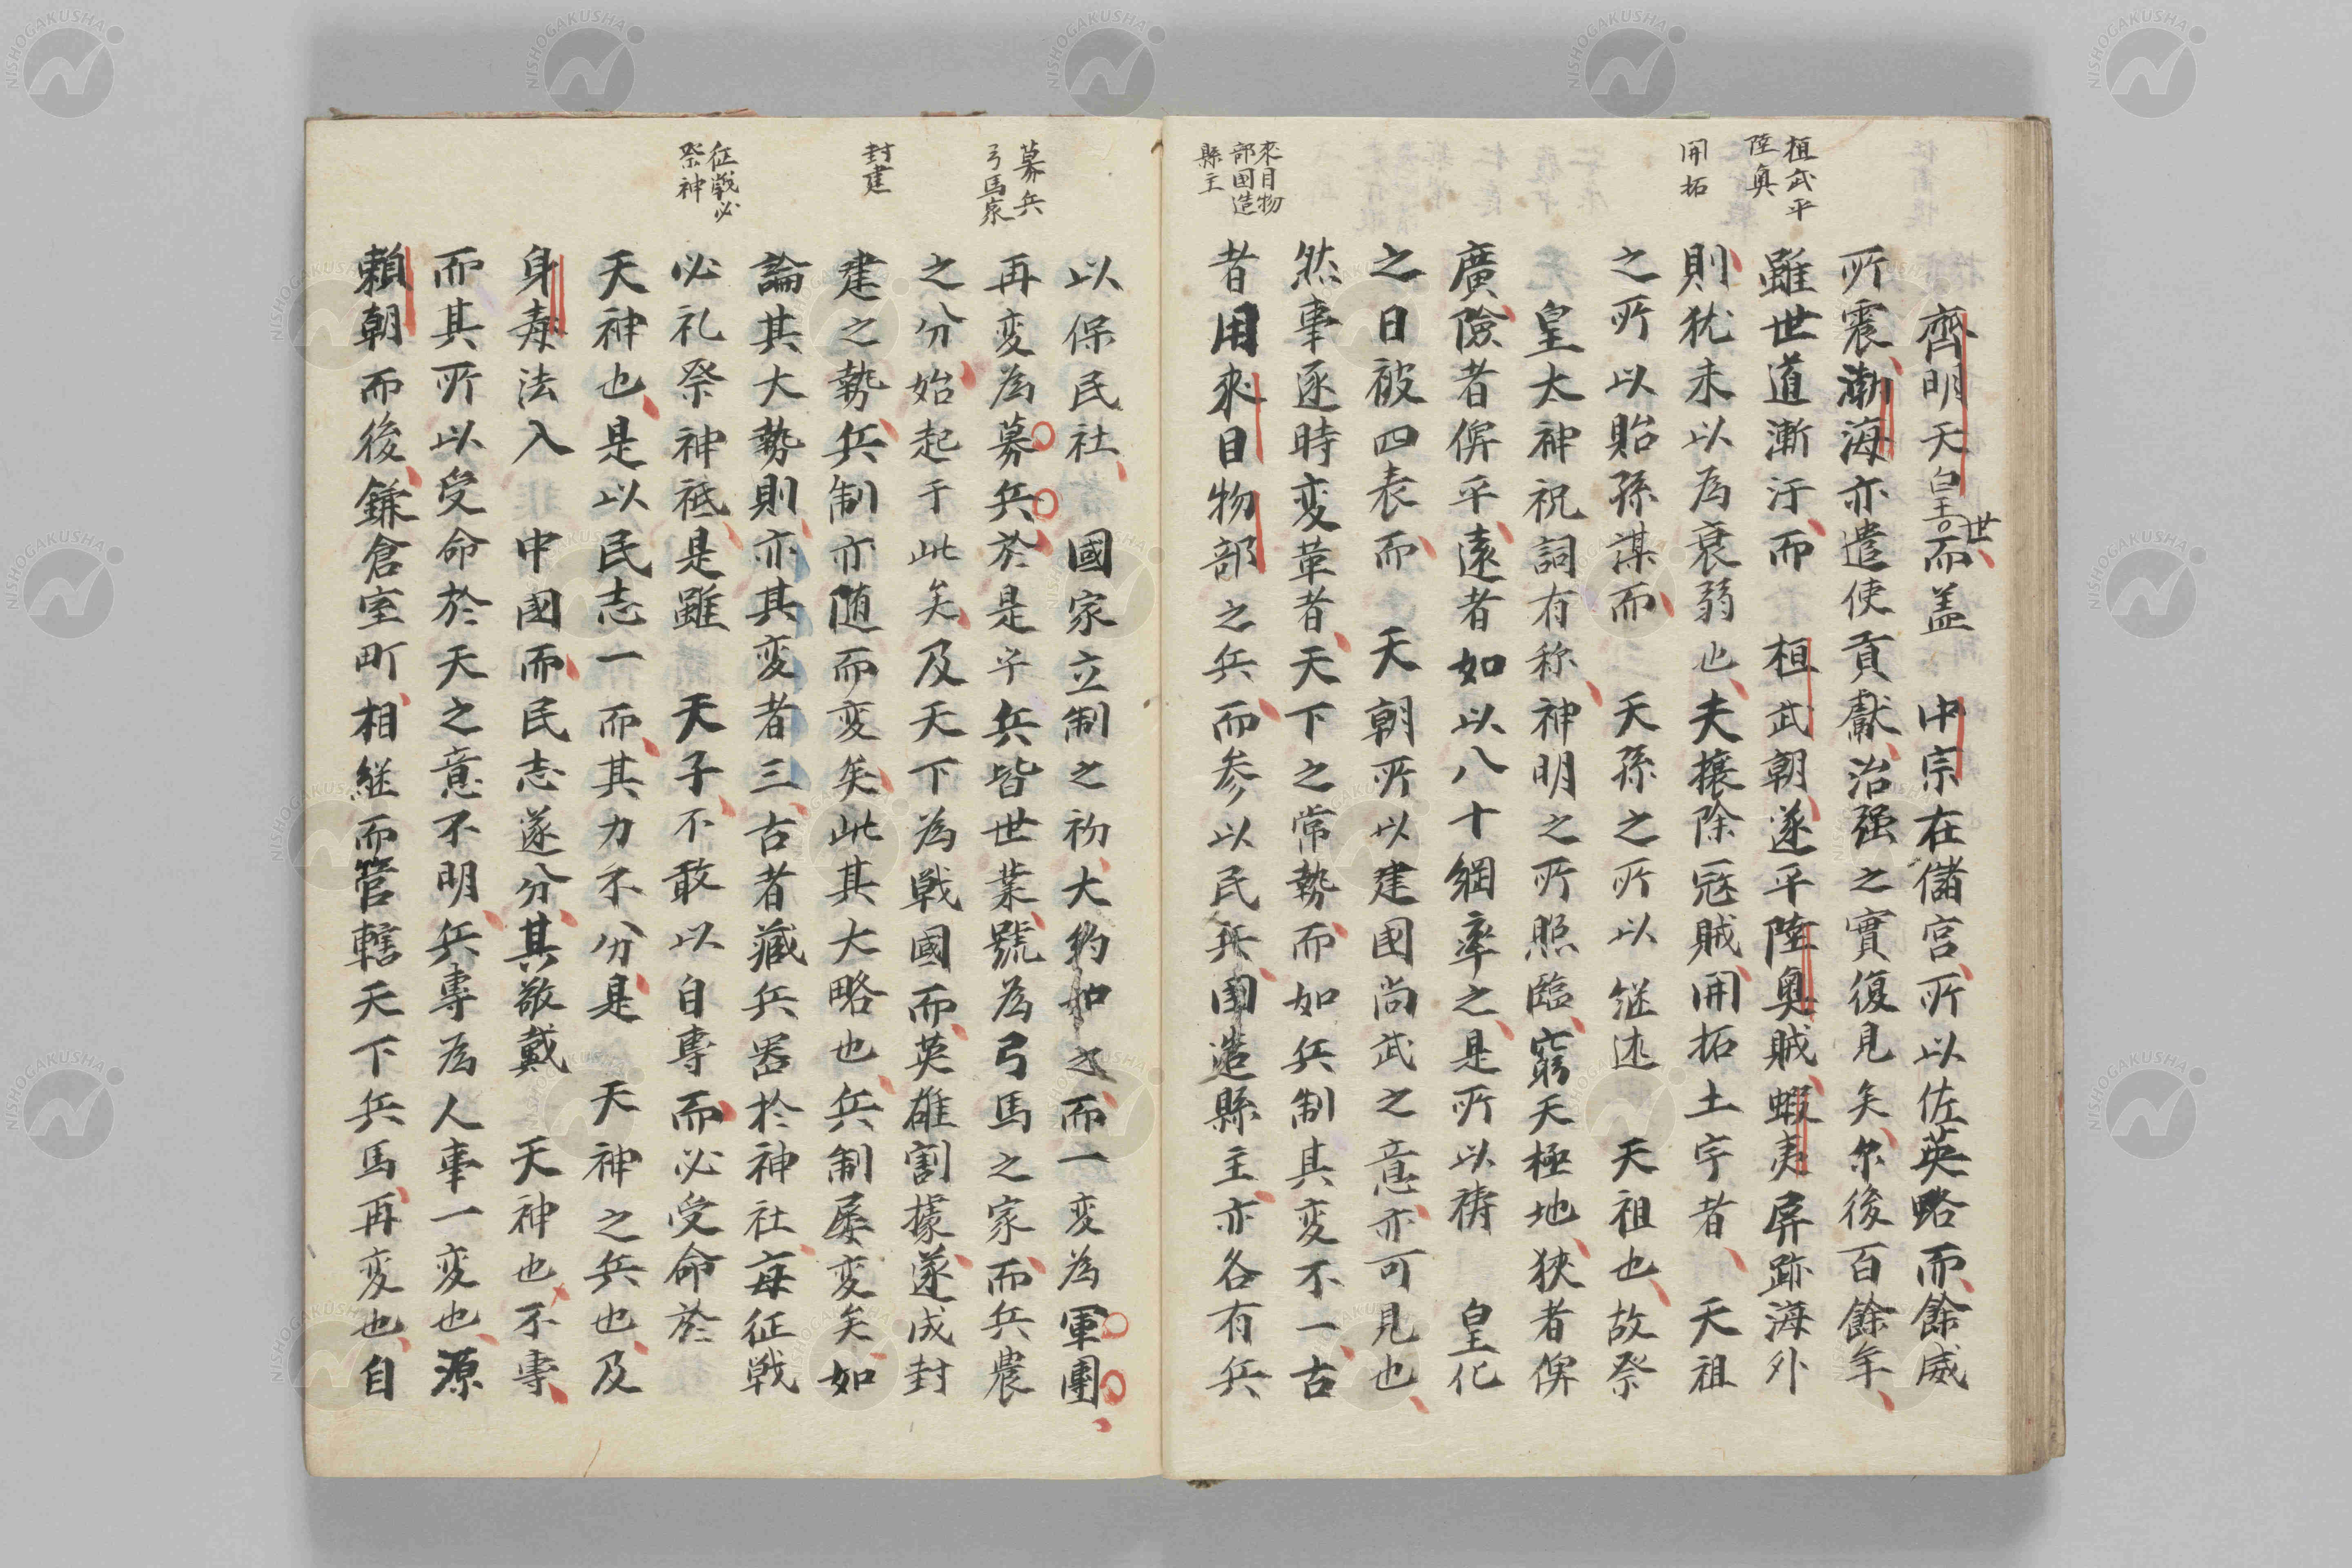 桓武平
陸奥
開拓
來目物
部国造
縣主
齊明天皇世而盖　中宗在儲宮所以佐英略而餘威
所震渤海亦遣使貢獻治强之實復見矣尓後百餘年
雖世道漸汙而　桓武朝遂平陸奥賊蝦夷屏跡海外
則犹未以為衰弱也夫攘除冦賊開拓土宇者　天祖
之所以貽孫謀而　天孫之所以継述　天祖也故祭
皇太神祝詞有称神明之所照臨窮天極地狹者俾
廣險者俾平遠者如以八十綱牽之是所以祷　皇化
之日被四表而　天朝所以建国尚武之意亦可見也
然事逐時変革者天下之常勢而如兵制其変不一古
昔用來目物部之兵而参以民兵国造縣主亦各有兵
募兵
弓馬家
封建
征戦必
祭神
以保民社　國家立制之初大約如之而一変為軍團
再変為募兵於是乎兵皆世業號為弓馬之家而兵農
之分始起于此矣及天下為戦國而英雄割據遂成封
建之勢兵制亦随而変矣此其大略也兵制屡変矣如
論其大勢則亦其変者三古者藏兵器於神社毎征戦
必礼祭神祇是雖　天子不敢以自專而必受命於
天神也是以民志一而其力不分是　天神之兵也及
身毒法入　中國而民志遂分其敬戴　天神也不專
而其所以受命於天之意不明兵專為人事一変也源
頼朝而後鎌倉室町相継而管轄天下兵馬再変也自
NISHOGAKUSHA